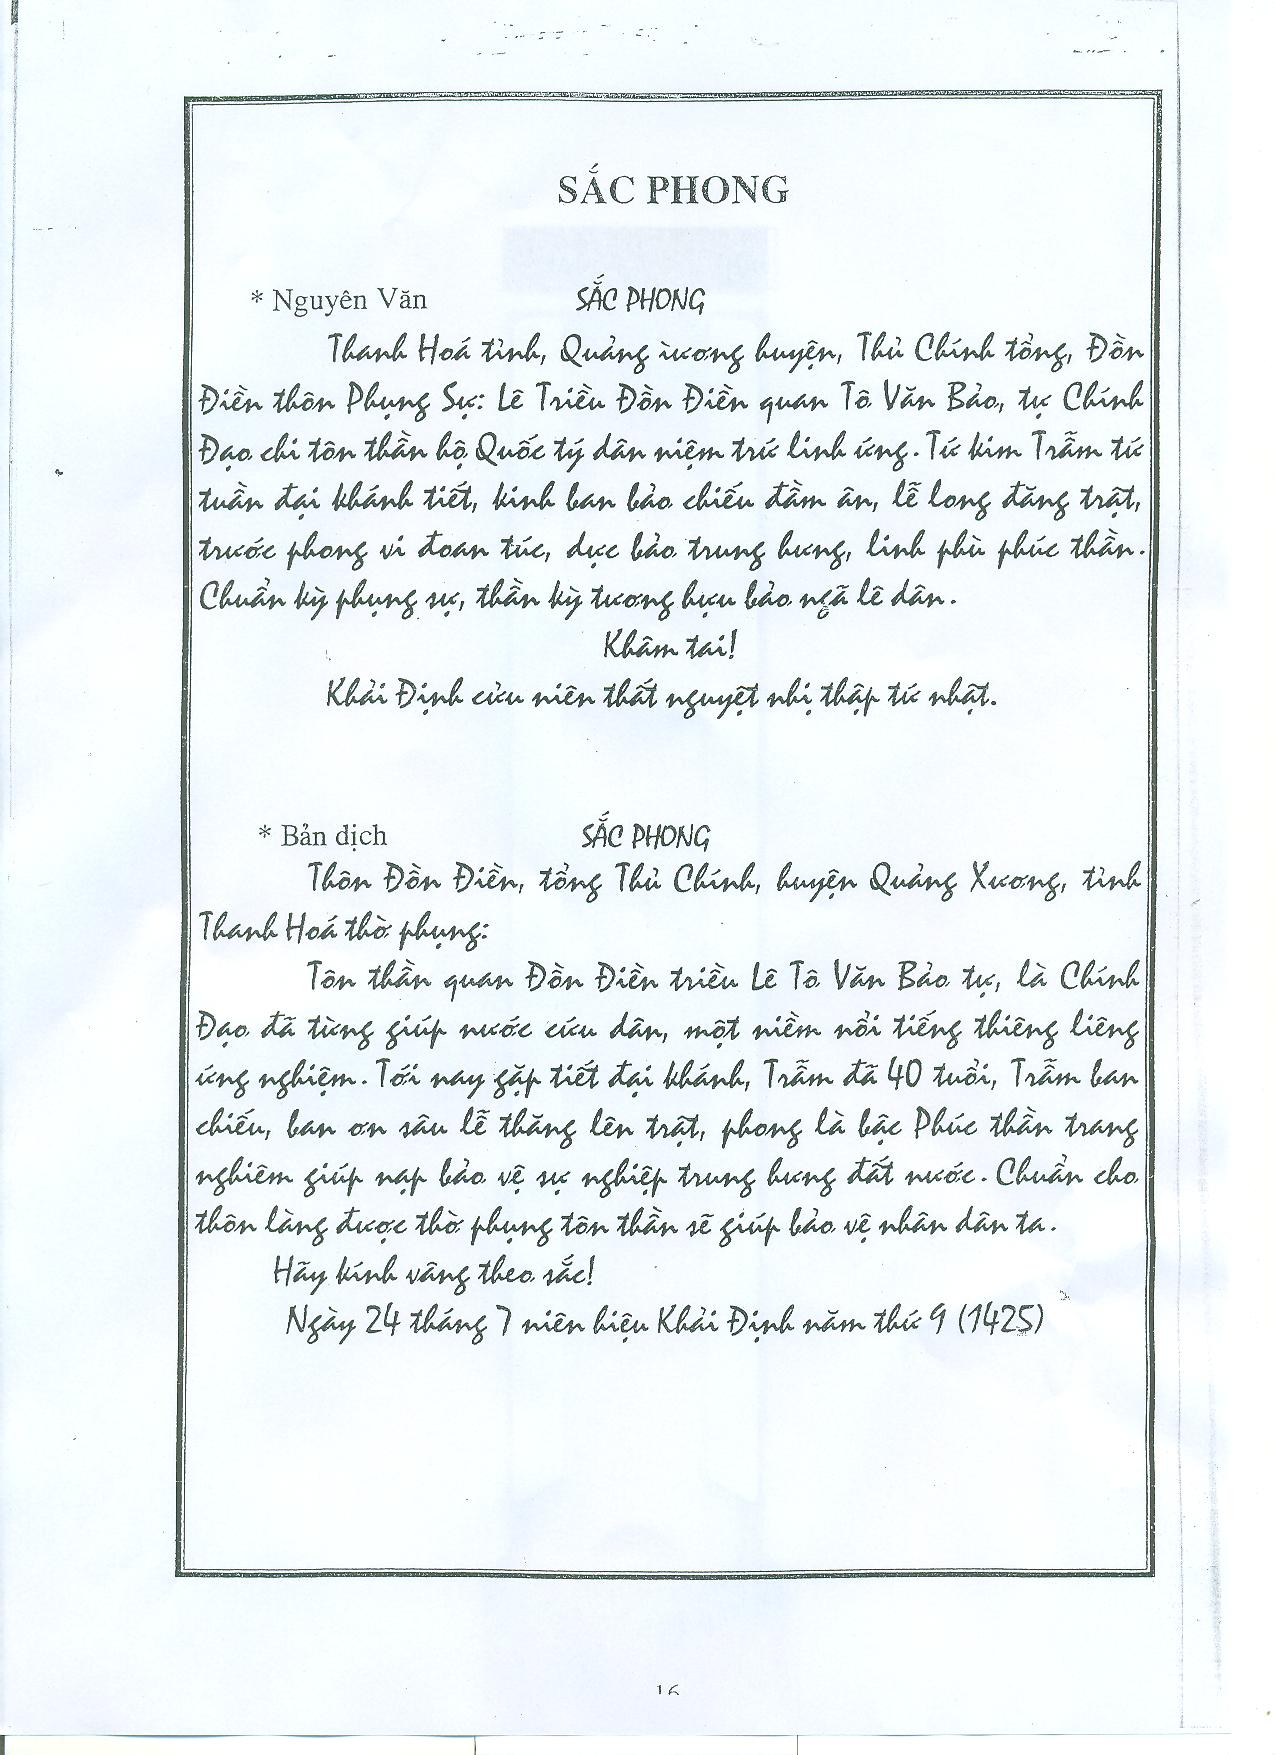 SẮC PHONG
* Nguyên Văn SẮC PHONG
Thanh Hoá tỉnh, Quảng ương huyện, Thủ Chính tổng, Đồn
Điền thôn Phụng Sự: Lê Triều Đồn Điền quan Tô Văn Bảo, tự Chính
Đạo chi tôn thần hộ Quốc tý dân niệm trứ linh ứng. Tứ kim Trẫm tứ
tuần đại khánh tiết, kinh ban bảo chiếu đầm ân, lễ long đăng trật,
trước phong vi đoan túc, dực bảo trung hưng, linh phù phúc thần.
Chuẩn kỳ phụng sự, thần kỳ tương hựu bảo ngã lê dân.
Khâm tai!
Khải Định cửu niên thất nguyệt nhị thập tứ nhật.
* Bản dịch SẮC PHONG
Thôn Đồn Điền, tổng Thủ Chính, huyện Quảng Xương, tỉnh
Thanh Hoá thờ phụng:
Tôn thần quan Đồn Điền triều Lê Tô Văn Bảo tự, là Chính
Đạo đã từng giúp nước cứu dân, một niềm nổi tiếng thiêng liêng
ứng nghiệm. Tới nay gặp tiết đại khánh, Trẫm đã 40 tuổi, Trẫm ban
chiếu, ban ơn sâu lễ thăng lên trật, phong là bậc Phúc thần trang
nghiêm giúp nạp bảo vệ sự nghiệp trung hưng đất nước. Chuẩn cho
thôn làng được thờ phụng tôn thần sẽ giúp bảo vệ nhân dân ta.
Hãy kính vâng theo sắc!
Ngày 24 tháng 7 niên hiệu Khải Định năm thứ 9 (1425)
16